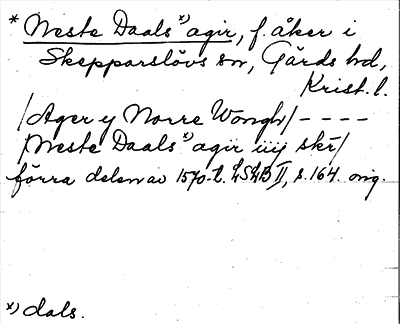 * Neste Daals x) agir, f. åker i
Skepparslövs sn, Gärds hd,
Krist. l.
/Ager y Norre Wongh/ - - - -
/Neste Daals x) agir iiij skr/
förra delen av 1570-t. LSLB II, s. 164. orig.
x) dals.